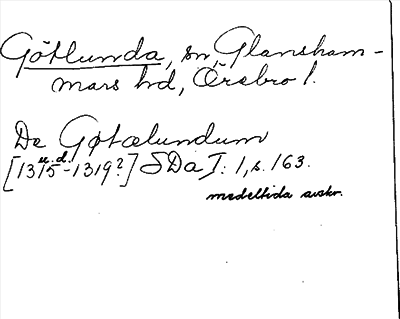 Götlunda, sn, Glansham-
mars hd, Örebro l.
De Gøtalundum
[u.d. 1315-1319?] SDa I: 1, s. 163.
medeltida avskr.